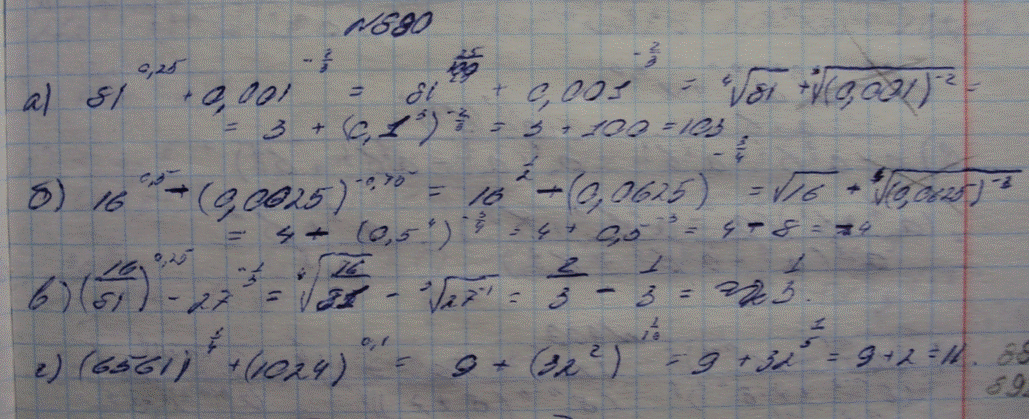 №680
а) 81^0,25 + 0,001^(-2/3) = 81^(25/100) + 0,001^(-2/3) = ⁴√81 + ³√(0,001)^-2 =
= 3 + (0,1^3)^(-2/3) = 3 + 100 = 103
б) 16^0,5 - (0,0625)^-0,75 = 16^(1/2) - (0,0625)^(-3/4) = √16 + √(0,0625)^-3
= 4 - (0,5^4)^(-3/4) = 4 - 0,5^-3 = 4 - 8 = -4
в) (16/81)^0,25 - 27^(-1/3) = ⁴√(16/81) - ³√27^-1 = 2/3 - 1/3 = 1/3.
г) (6561)^(1/4) + (1024)^0,1 = 9 + (32^2)^(1/10) = 9 + 32^(1/5) = 9 + 2 = 11.